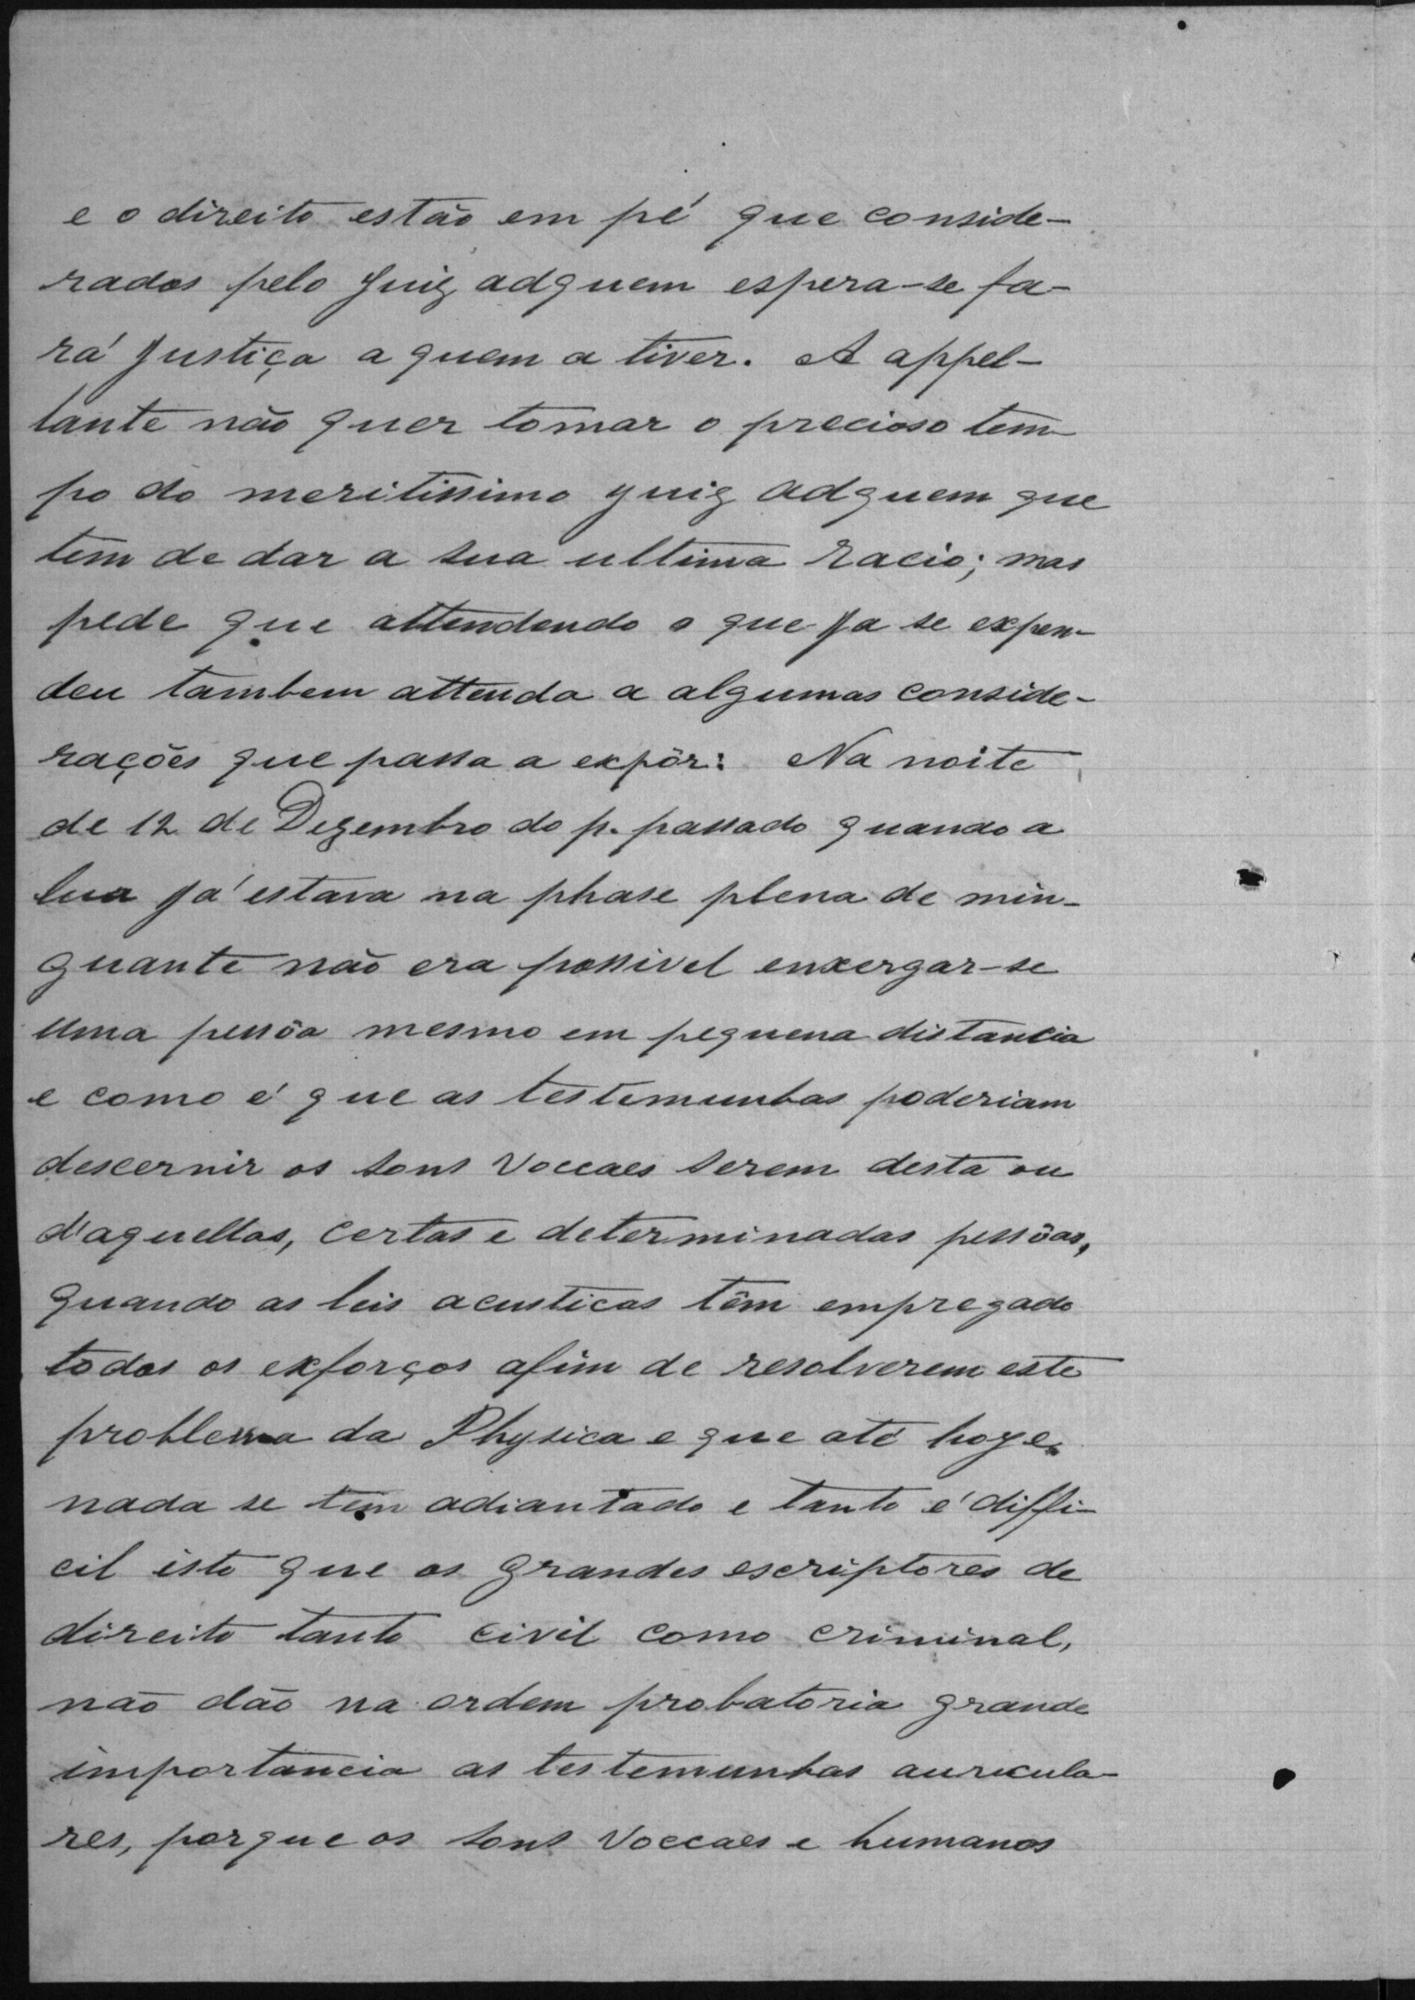 e o direito estão em pé que conside-
rados pelo Juiz adquem espera-se fa-
rá justiça a quem a tiver. A appel-
lante não quer tomar o precioso tem-
po do meritissimo juiz adquem que
tem de dar a sua ultima racio; mas
pede que attendendo o que ja se expen-
deu tambem attenda a algumas conside-
rações que passa a expôr: Na noite
de 12 de Dezembro do p. passado quando a
lua já estava na phase plena de min-
guante não era possivel enxergar-se
uma pessôa mesmo em pequena distancia
e como é que as testemunhas poderiam
descernir os sons voccaes serem desta ou
d'aquellas, certas e determinadas pessôas,
quando as leis acusticas têm empregado
todos os exforços afim de resolverem este
problema da Physica e que até hoje
nada se tem adiantado e tanto é diffi-
cil isto que os grandes escriptores de
direito tanto civil como criminal,
não dão na ordem probatoria grande
importancia as testemunhas auricula-
res, porque os sons voccaes e humanos